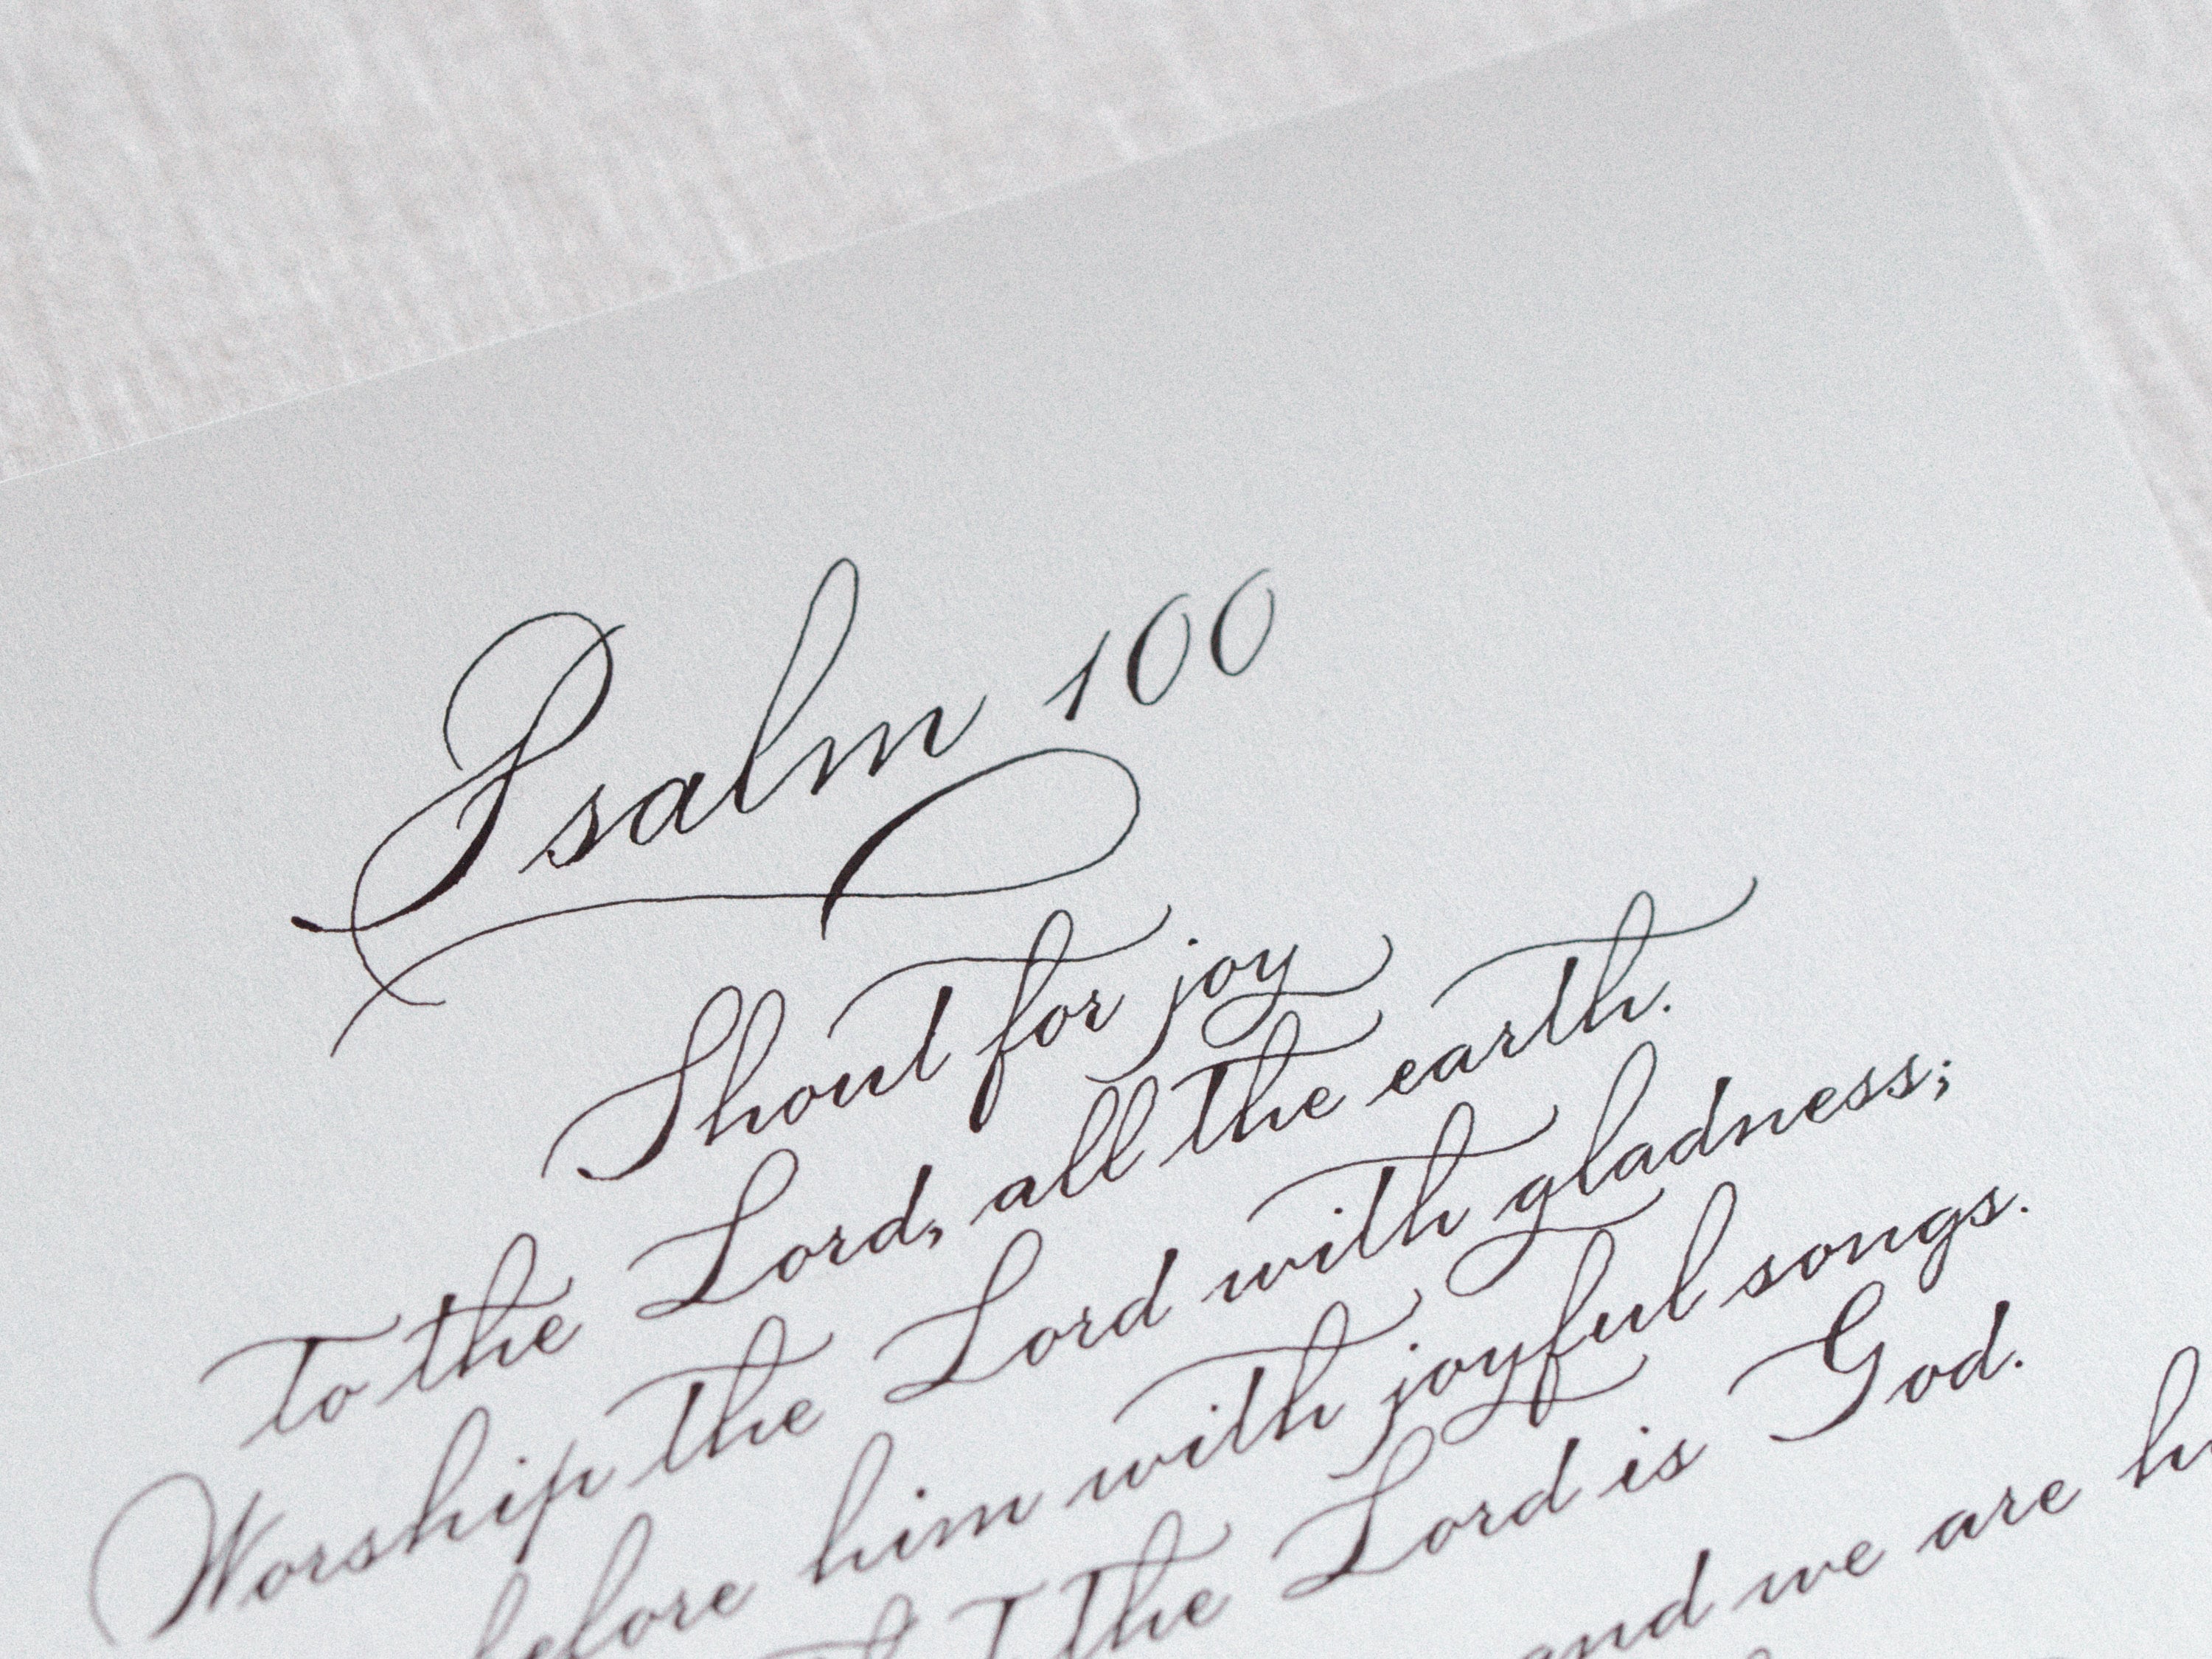 Psalm 100
Shout for joy
To the Lord, all the earth.
Worship the Lord with gladness;
before him with joyful songs.
The Lord is God.
and we are